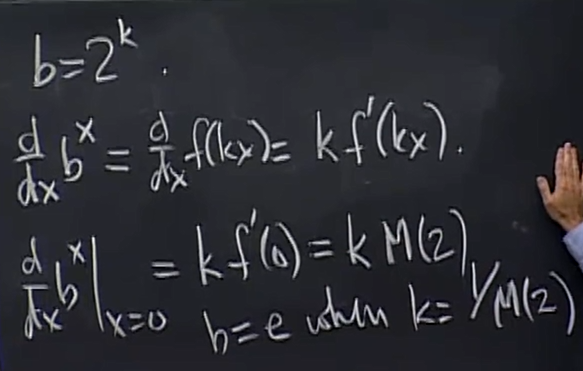 b=2^k.
d/dx b^x = d/dx f(kx) = k f'(kx).
d/dx b^x |x=0 = k f'(0) = k M(2)
b=e when k= 1/M(2)